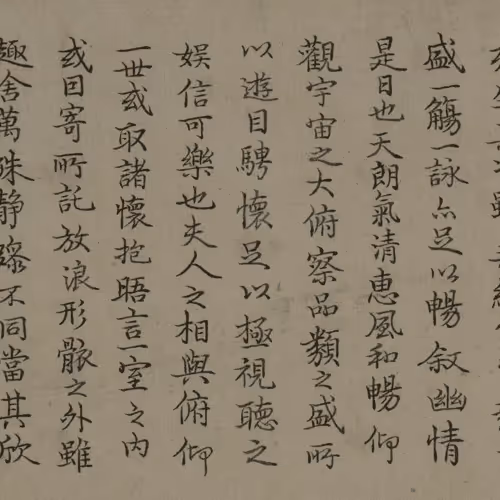 盛一觴一詠亦足以暢叙幽情
是日也天朗氣清惠風和暢仰
觀宇宙之大俯察品類之盛所
以遊目騁懷足以極視聽之
娛信可樂也夫人之相與俯仰
一世或取諸懷抱晤言一室之内
或因寄所託放浪形骸之外雖
趣舍萬殊静躁不同當其欣